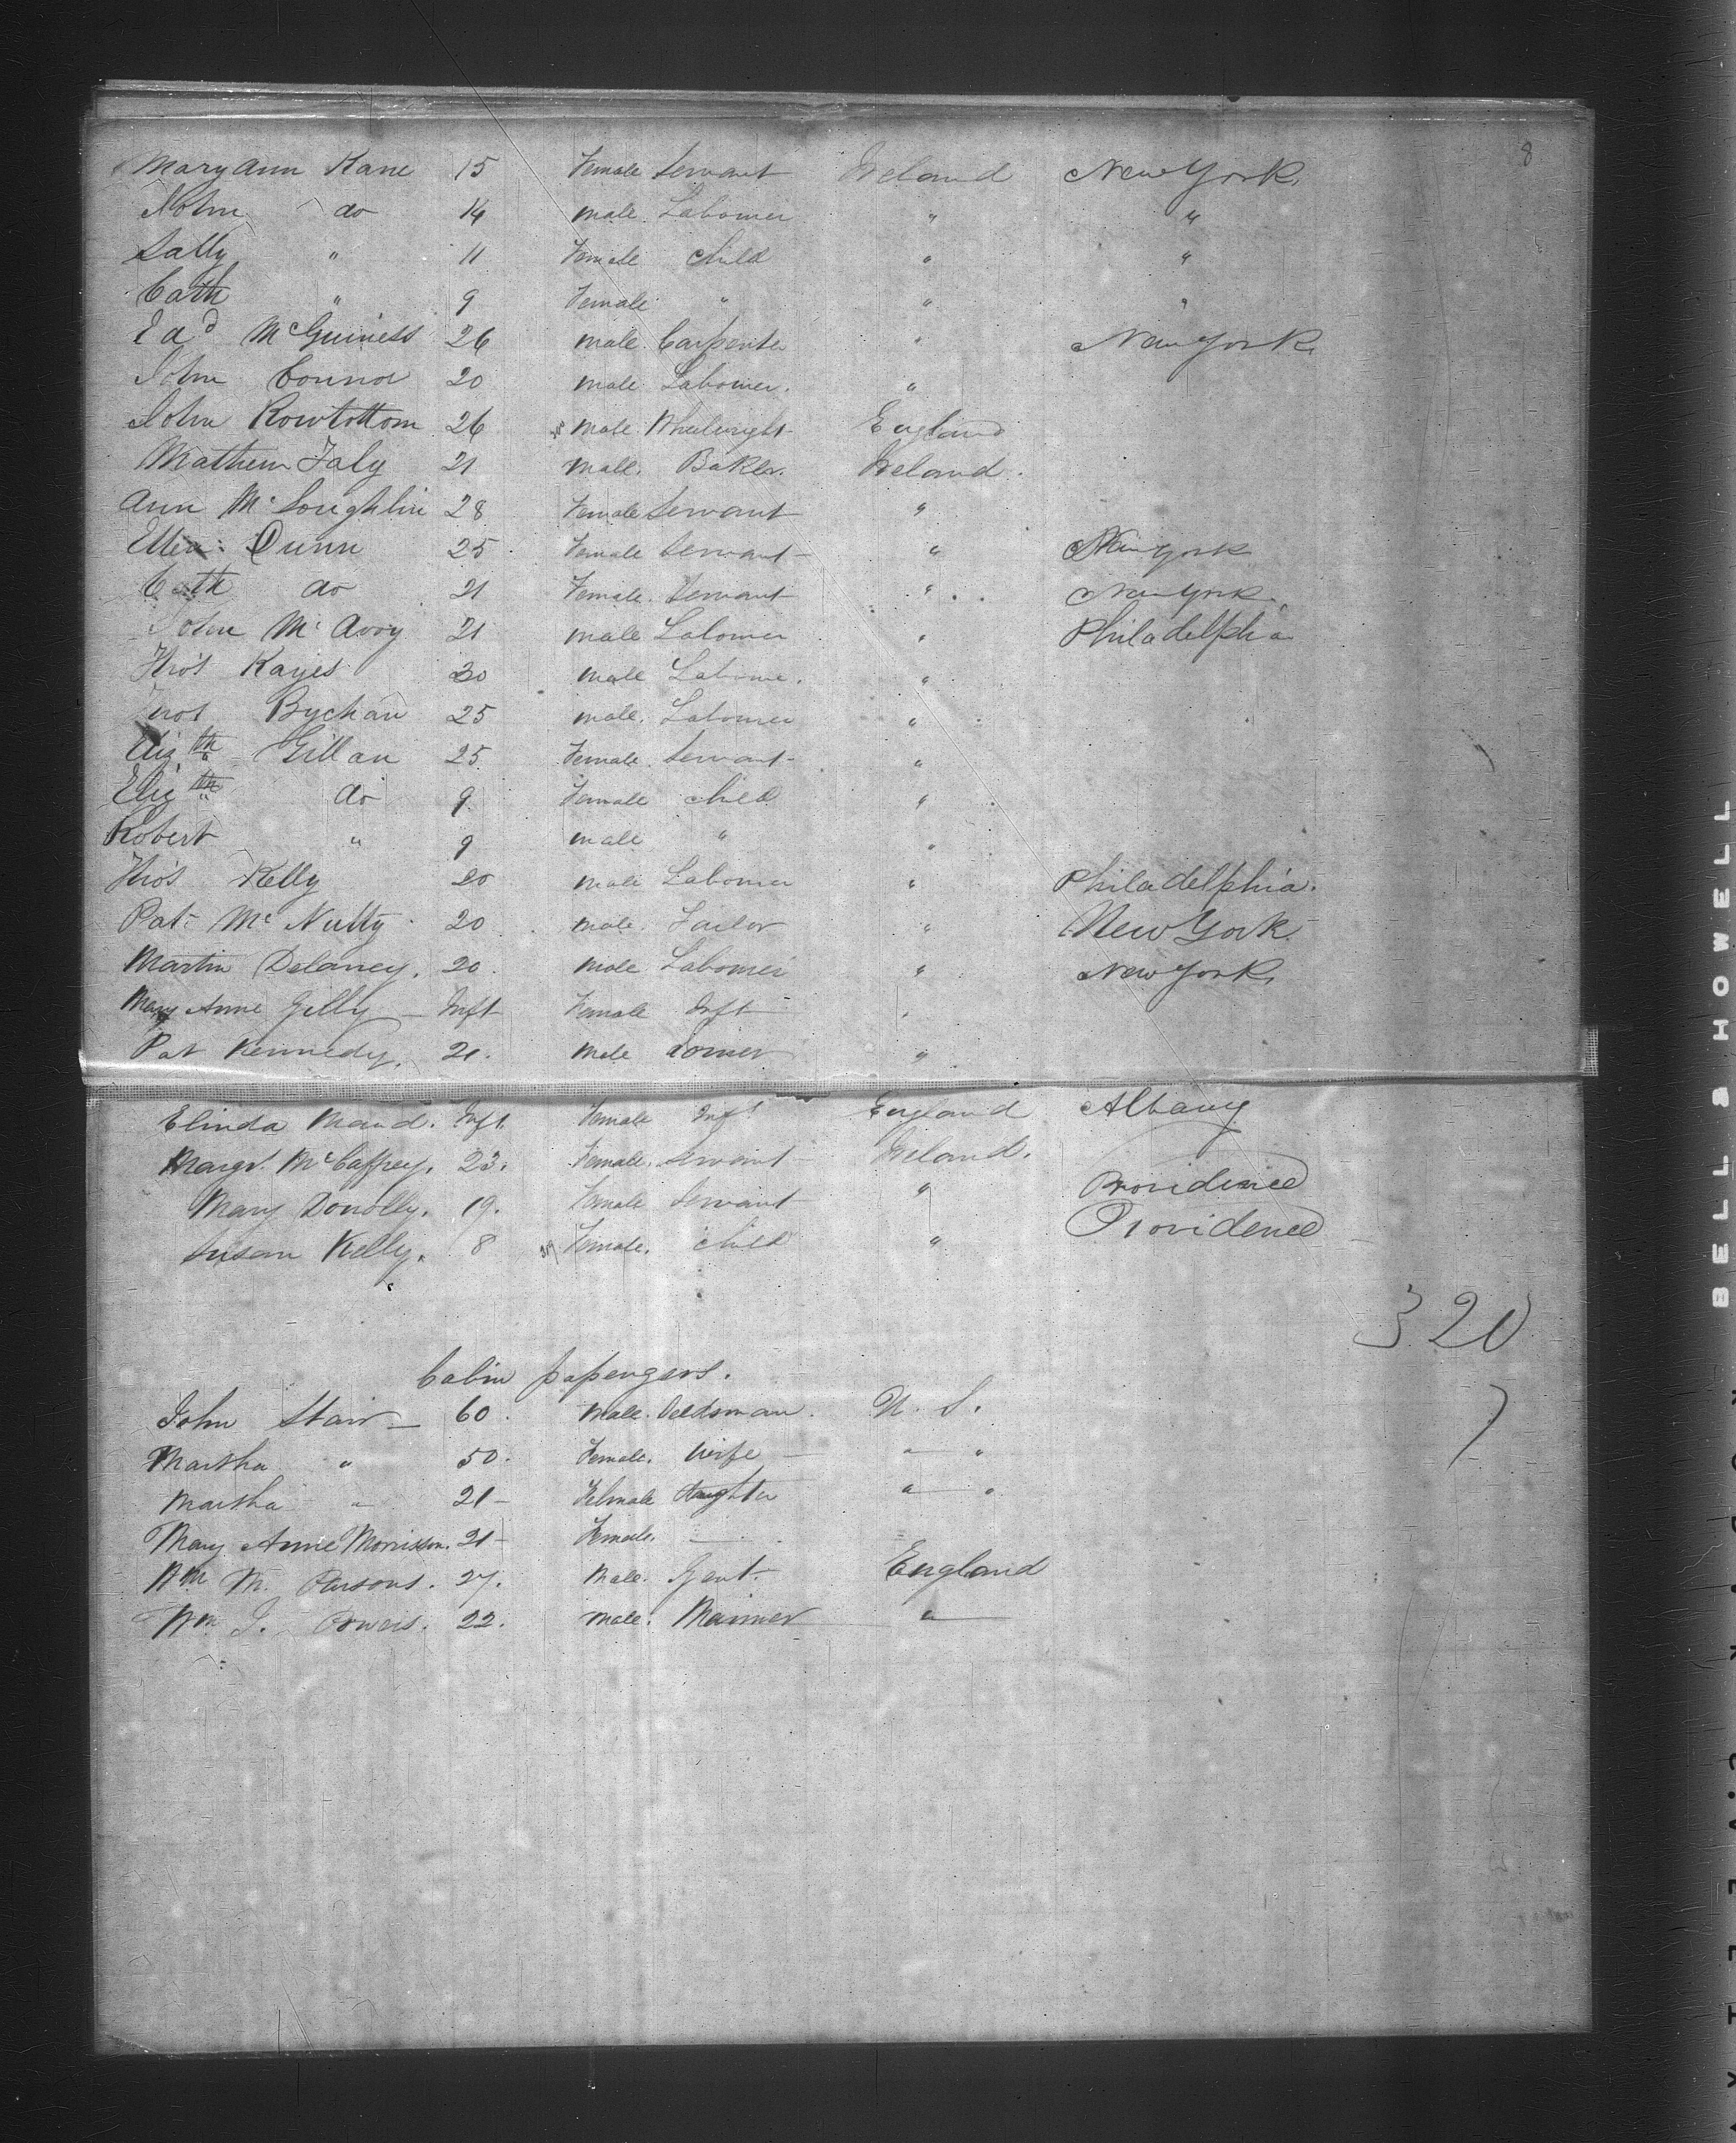 8
Mary Ann Kane 15 Female Servant Ireland New York
John do 14 male Labourer " "
Sally " 11 Female child " "
Cath " 9 Female " " "
Edd McGuiness 26 male Carpenter " New York
John Connor 20 male Labourer "
John Rowbottom 26 male Wheelwright England
Mathew Faly 21 male Baker Ireland
Ann McLoughlin 28 Female Servant "
Ellen Dunn 25 Female Servant " New York
Cath do 21 Female Servant " New York
John McAvoy 21 male Labourer " Philadelphia
Thos Kayes 20 male Labourer "
Thos Bychan 25 male Labourer "
Elizth Gillan 25 Female Servant "
Elizth do 9 Female child "
Robert " 9 male " "
Thos Kelly 20 male Labourer " Philadelphia
Pat McNulty 20 male Tailor " New York
Martin Delaney 20 male Labourer " New York
Mary Anne Gilly Inft Female Inft "
Pat Kennedy 21 male "
Elinda Maud Inft Female Inft England Albany
Margt McCaffrey 23 Female Servant Ireland
Mary Donolly 19 Female Servant " Providence
Susan Kelly 8 Female child " Providence
320
Cabin passengers.
John Starr 60 male U. S.
Martha " 50 Female Wife " "
Martha " 21 Female daughter " "
Mary Anne Morrisson 21 Female
Wm M. Parsons 27 male Gent England
Wm J. Powers 22 male Mariner "
BELL & HOWELL